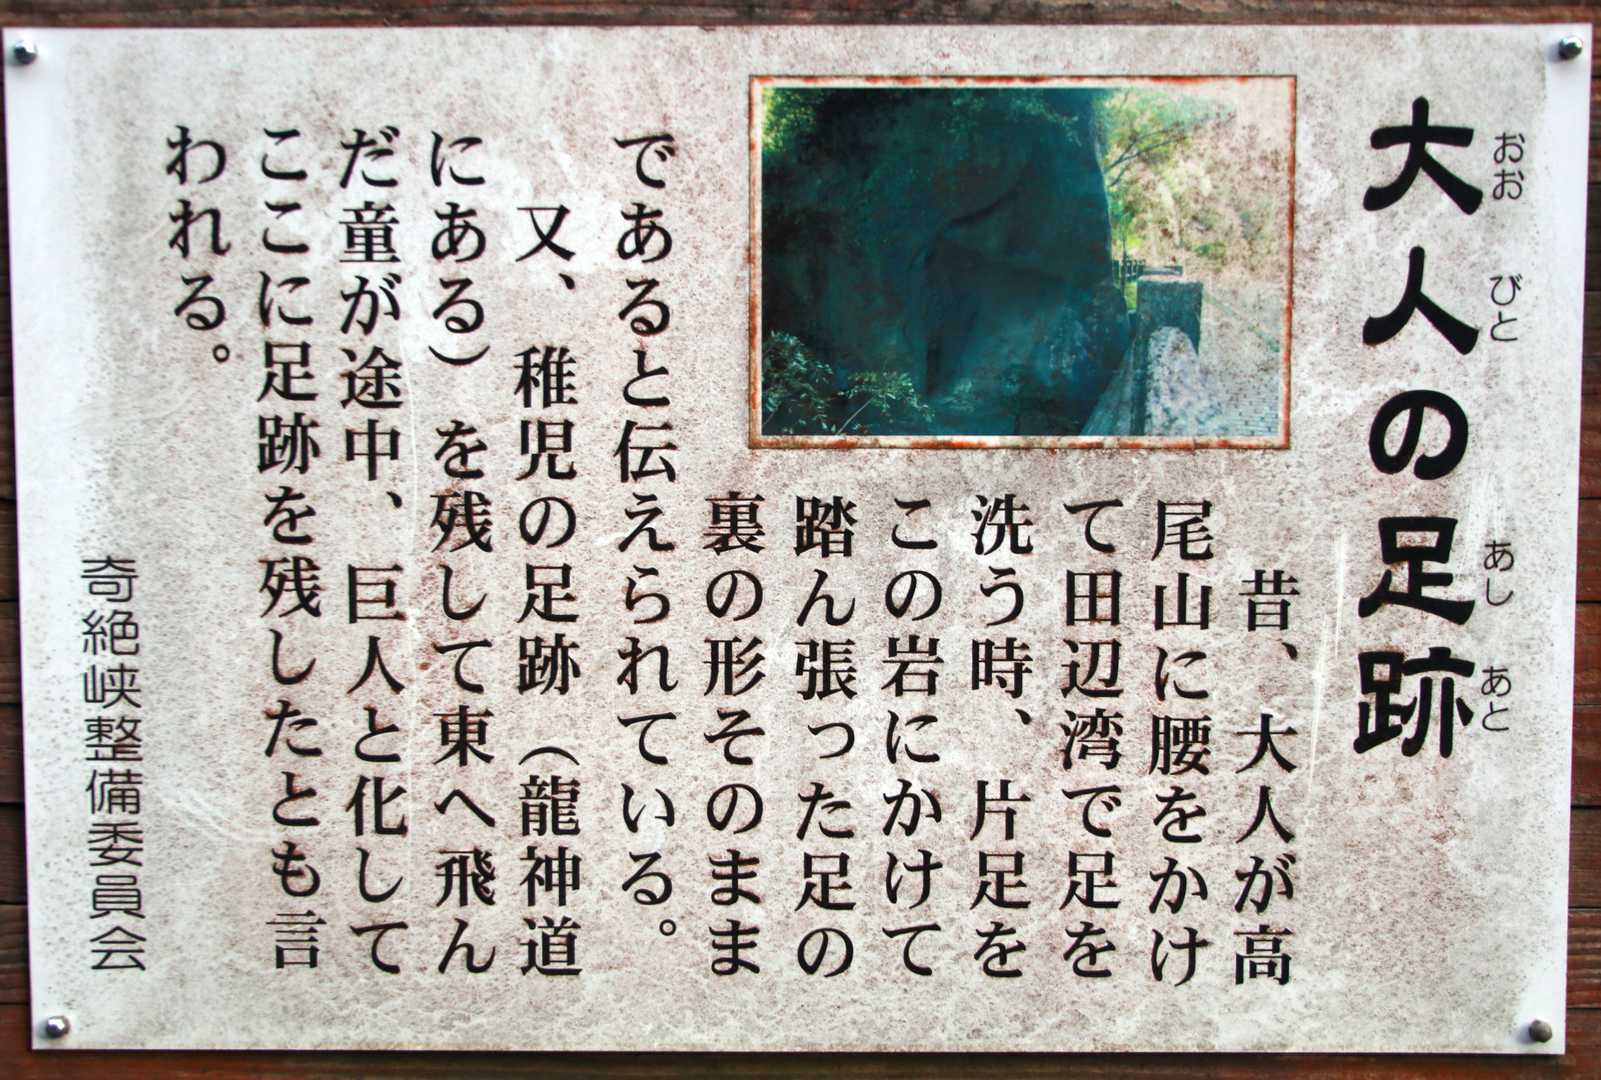 大人の足跡
おおびと あしあと
昔、大人が高
尾山に腰をかけ
て田辺湾で足を
洗う時、片足を
この岩にかけて
踏ん張った足の
裏の形そのまま
であると伝えられている。
又、稚児の足跡（龍神道
にある）を残して東へ飛ん
だ童が途中、巨人と化して
ここに足跡を残したとも言
われる。
奇絶峡整備委員会